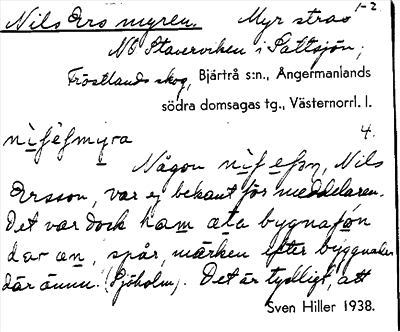 Nils Ers myren. Myr strax 1-2
NÖ Staverviken i Sattsjön,
Fröstlands skog, Bjärtrå s:n., Ångermanlands
södra domsagas tg., Västernorrl. l.
nìfèfmyra 4.
Någon nìf efon, Nils
Ersson, var ej bekant för meddelaren.
Det var dock ham ata bygnafon
dar an, spår, märken efter byggnader
där ännu. (Sjöholm). Det är tydligt, att
Sven Hiller 1938.